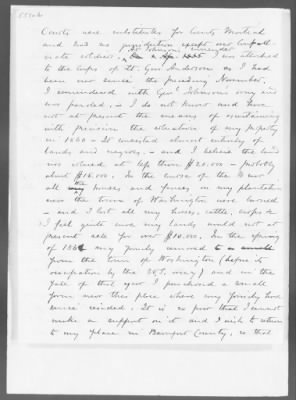 Courts were substitutes for Courts Martial
and had no jurisdiction except over Confed-
erate soldiers. At Johnston's surrender I was attached
to the Corps of Lt. Genl Anderson as I had
been ever since the preceding November.
I surrendered with Genl Johnston's army and
was paroled. I do not know and have
not at present the means of ascertaining
with precision the valuation of my property
in 1860 - It consisted almost entirely of
lands and negroes, - and I believe the land
was valued at less than $20.000 - probably
about $15.000. In the course of the war
all the houses and fences on my plantation
near the town of Washington were burned
- and I lost all my horses, cattle, crops &
I feel quite sure my lands would not at
present sell for over $10.000. In the spring
of 186 my family removed
from the town of Washington (before its
occupation by the U.S. army) and in the
fall of that year I purchased a small
farm near this place where my family have
since resided. It is so poor that I cannot
make a support on it and I wish to return
to my place in Beaufort County, so that